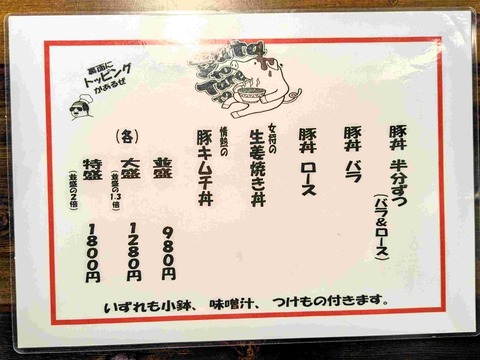 豚丼 半分ずつ
(バラ&ロース)
豚丼 バラ
豚丼 ロース
女将の
生姜焼き丼
情熱の
豚キムチ丼
(各)
並盛 980円
大盛 1280円
(並盛の1.3倍)
特盛 1800円
(並盛の2倍)
裏面に
トッピング
があるぜ
いずれも小鉢、味噌汁、つけもの付きます。